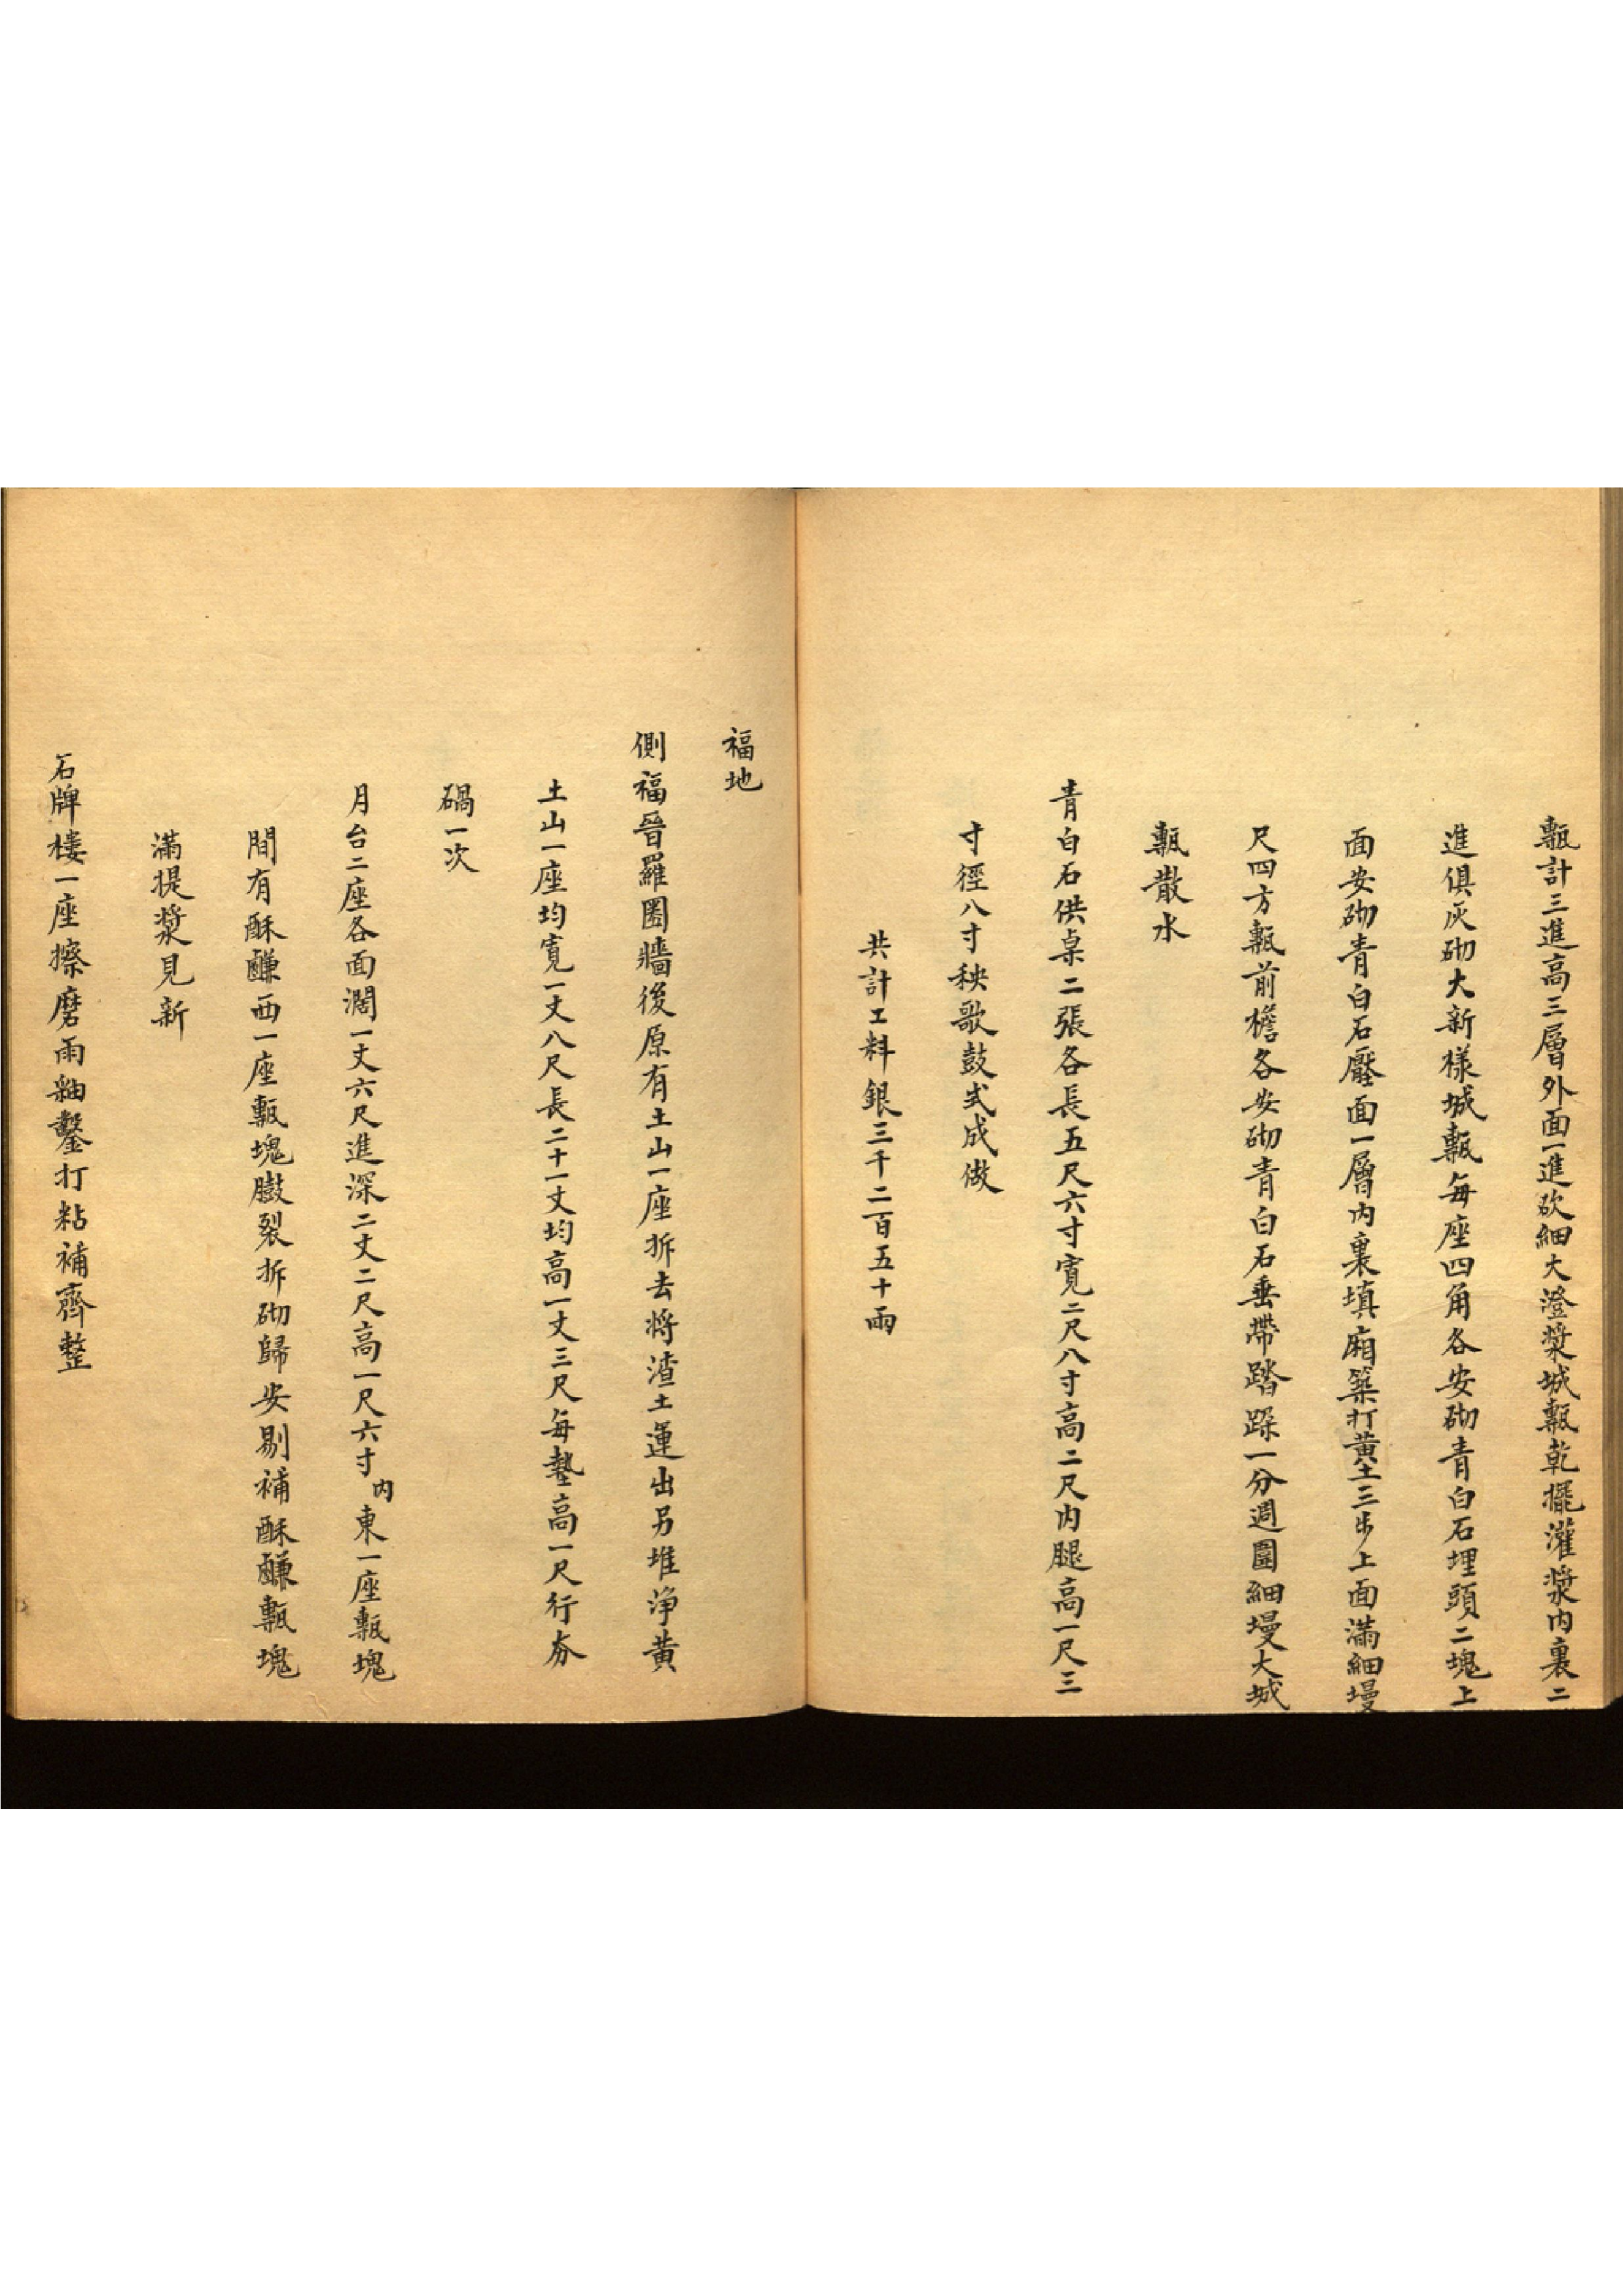 甎計三進高三層外面一進砍細大澄漿城甎乾擺灌漿内裏二
進俱灰砌大新様城甎每座四角各安砌青白石埋頭二塊上
面安砌青白石壓面一層内裏填廂築打黄土三步上面滿細墁
尺四方甎前檐各安砌青白石垂帶踏跺一分週圍細墁大城
甎散水
青白石供桌二張各長五尺六寸寬二尺八寸高二尺内腿高一尺三
寸徑八寸秧歌鼓式成做
共計工料銀三千二百五十兩
福地
側福晉羅圈牆後原有土山一座拆去將渣土運出另堆净黄
土山一座均寬一丈八尺長二十一丈均高一丈三尺每墊高一尺行夯
硪一次
月台二座各面濶一丈六尺進深二丈二尺高一尺六寸内東一座甎塊
間有酥䶢西一座甎塊臌裂拆砌歸安剔補酥䶢甎塊
滿提漿見新
石牌楼一座擦磨雨䌷鏨打粘補齊整